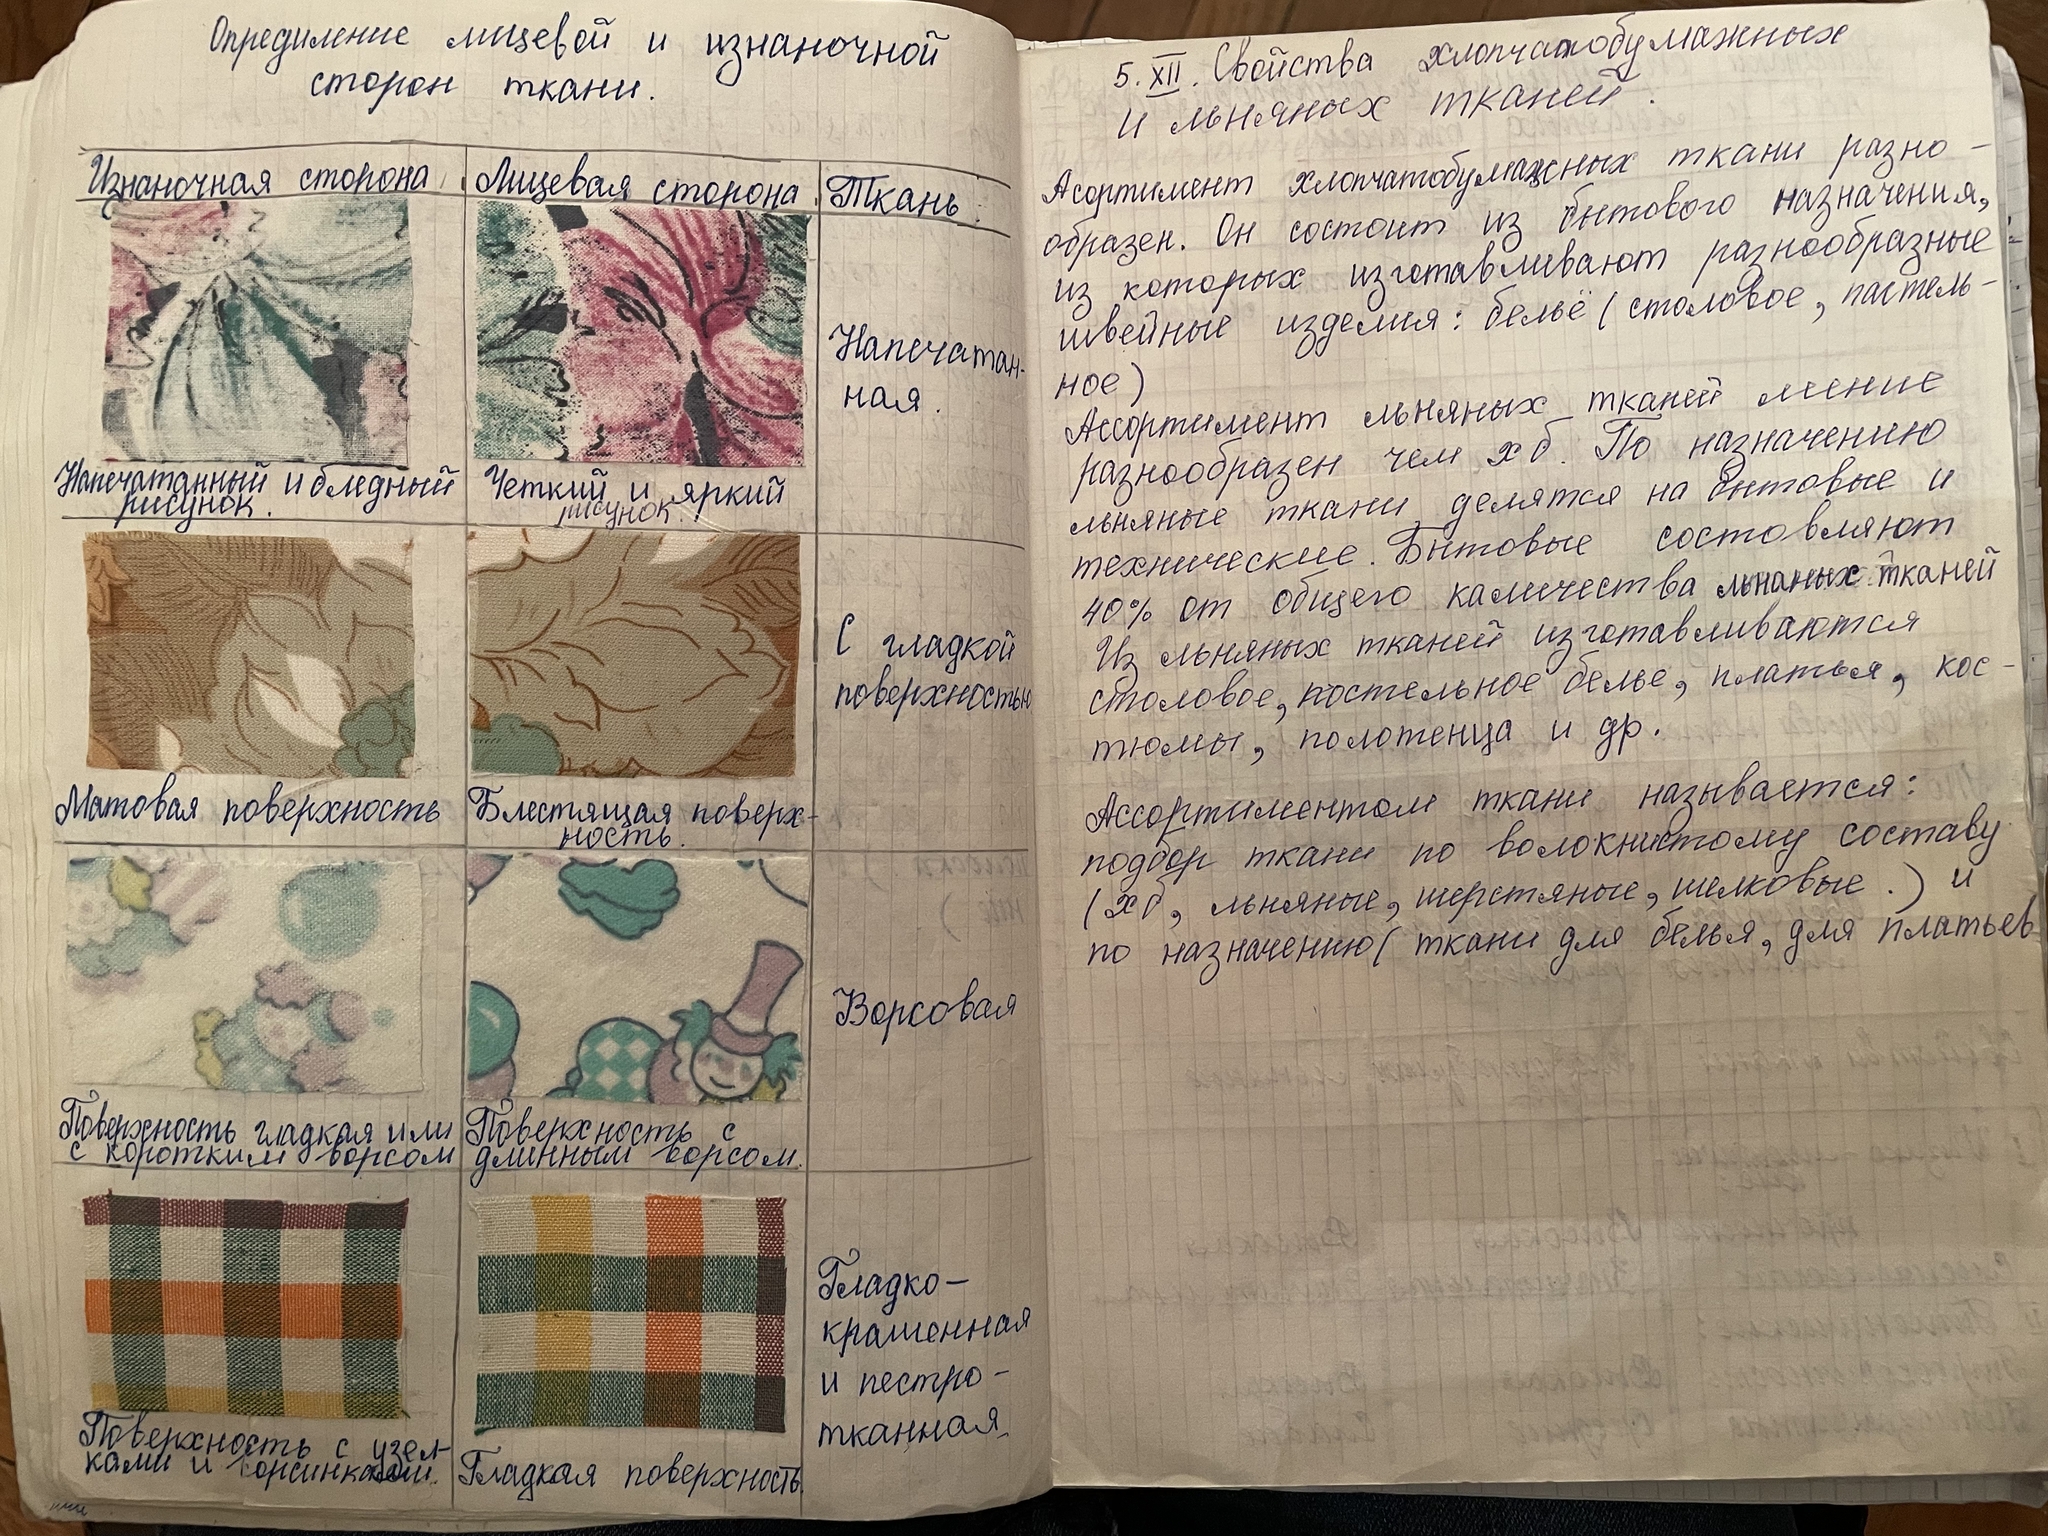 Определение лицевой и изнаночной
сторон ткани.
Изнаночная сторона
Лицевая сторона
Ткань.
Напечатанный и бледный
рисунок.
Четкий и яркий
рисунок.
Напечатан-
ная.
Матовая поверхность
Блестящая поверх-
ность.
С гладкой
поверхностью
Поверхность гладкая или
с коротким ворсом
Поверхность с
длинным ворсом.
Ворсовая
Поверхность с узел-
ками и ворсинками.
Гладкая поверхность
Гладко-
крашенная
и пестро-
тканная.
5.XII. Свойства хлопчатобумажных
и льняных тканей.
Асортимент хлопчатобумажных ткани разно-
образен. Он состоит из бытового назначения,
из которых изготавливают разнообразные
швейные изделия: бельё (столовое, пастель-
ное)
Ассортимент льняных тканей мение
разнообразен чем хб. По назначению
льняные ткани делятся на бытовые и
технические. Бытовые состовляют
40% от общего каличества льнаных тканей
Из льняных тканей изготавливаются
столовое, постельное белье, платья, кос-
тюмы, полотенца и др.
Ассортиментом ткани называется:
подбор ткани по волокнистому составу
(хб, льняные, шерстяные, шелковые.) и
по назначению (ткани для белья, для платьев